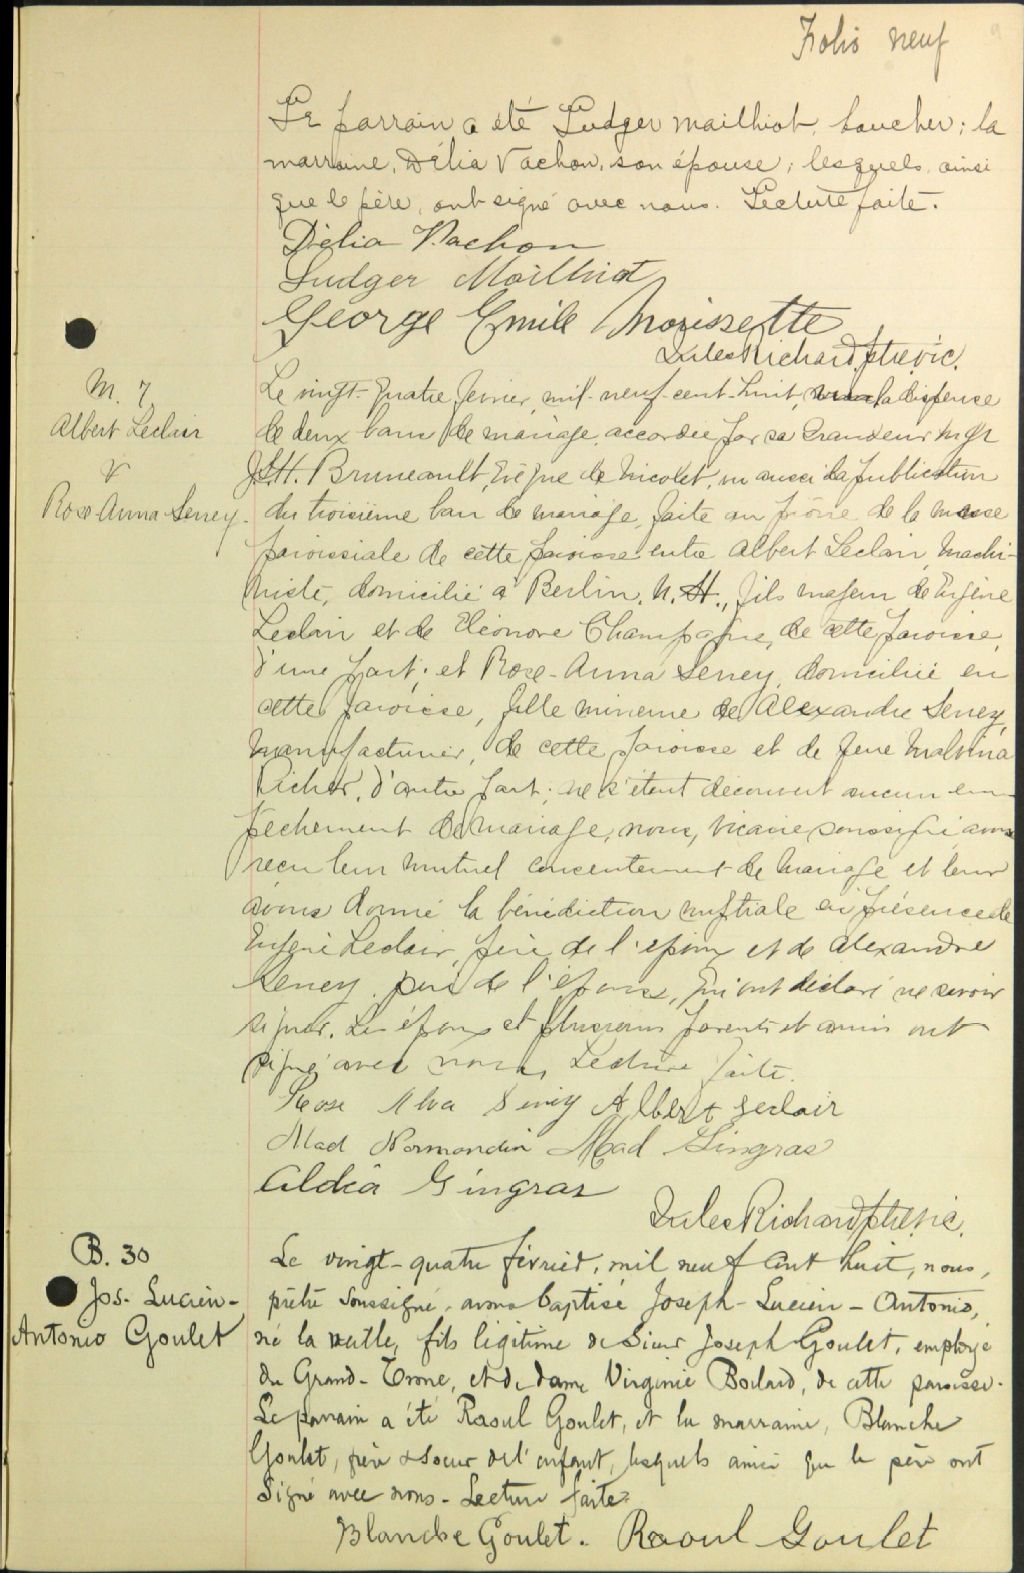 Folio neuf
Le parrain a été Ludger Mailhiot, boucher; la
marraine, Délia Vachon, son épouse; lesquels, ainsi
que le père, ont signé avec nous. Lecture faite.
Délia Vachon
Ludger Mailhiot
George Emile Morissette
Jules Richard, ptre, vic.
M. 7
Albert Leclair
&
Rose-Anna Seney.
Le vingt-quatre février, mil-neuf-cent-huit, vu la dispense
de deux bans de mariage, accordée par sa Grandeur Mgr
J.S.H. Bruneault, Evêque de Nicolet, vu aussi la publication
du troisième ban de mariage, faite au prône de la messe
paroissiale de cette paroisse entre Albert Leclair, machi-
niste, domicilié à Berlin, N. H., fils majeur de Eugène
Leclair et de Eléonore Champagne, de cette paroisse,
d'une part; et Rose-Anna Seney, domiciliée en
cette paroisse, fille mineure de Alexandre Seney,
manufacturier, de cette paroisse et de feue Malvina
Richer, d'autre part; ne s'étant découvert aucun em-
pêchement de mariage, nous, vicaire soussigné avons
reçu leur mutuel consentement de mariage et leur
avons donné la bénédiction nuptiale en présence de
Eugène Leclair, père de l'époux et de Alexandre
Seney, père de l'épouse, qui ont déclaré ne savoir
signer. Les époux et plusieurs parents et amis ont
signé avec nous, Lecture faite.
Rose Alva Seney Albert Leclair
Mad Normandin Mad Gingras
Aldéa Gingras
Jules Richard, ptre, vic.
B. 30
Jos- Lucien-
Antonio Goulet
Le vingt-quatre février, mil neuf cent huit, nous,
prêtre soussigné, avons baptisé Joseph-Lucien-Antonio,
né la veille, fils légitime de Sieur Joseph Goulet, employé
du Grand-Tronc, et de dame Virginie Boilard, de cette paroisse.
Le parrain a été Raoul Goulet, et la marraine, Blanche
Goulet, frère & soeur de l'enfant, lesquels ainsi que le père ont
signé avec nous - Lecture faite.
Blanche Goulet. Raoul Goulet